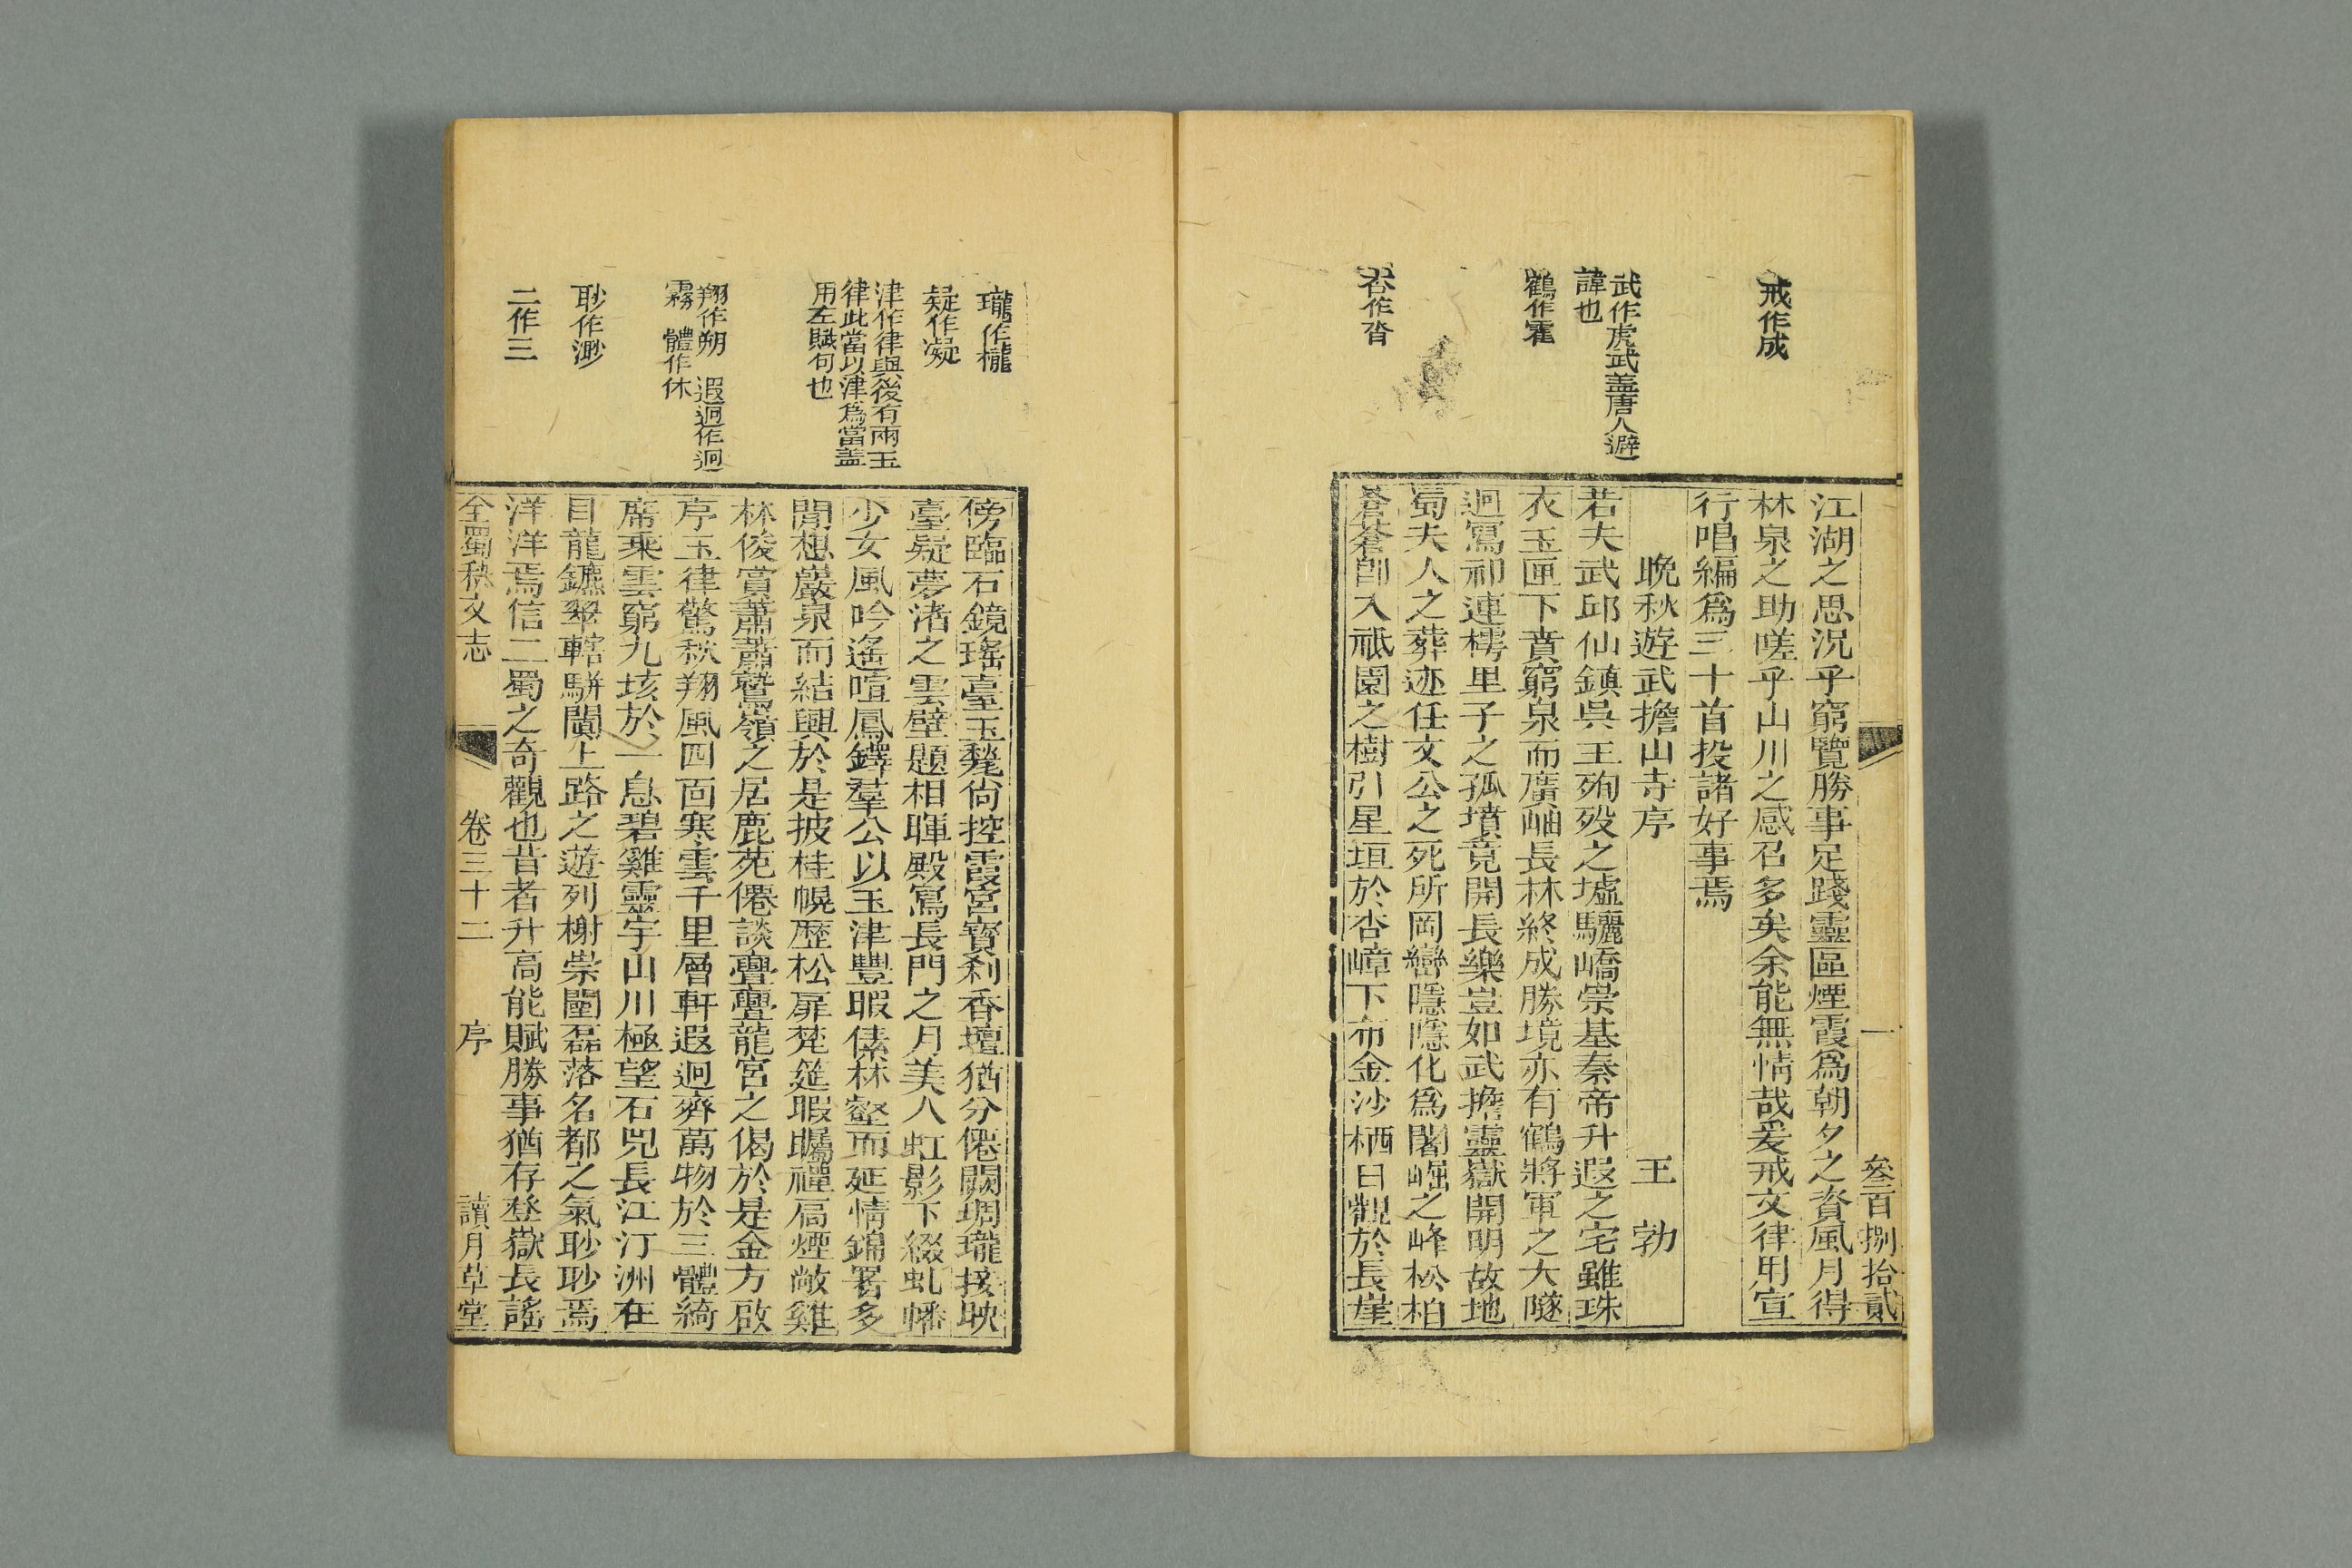 戒作成
武作虎武蓋唐人避
諱也
鶴作霍
杏作沓
一 叁百捌拾貳
江湖之思況乎窮覽勝事足踐靈區煙霞爲朝夕之資風月得
林泉之助嗟乎山川之感召多矣余能無情哉爰戒文律用宣
行唱編爲三十首投諸好事焉
晩秋遊武擔山寺序 王勃
若夫武邱仙鎮吳王殉歿之墟驪嶠崇基秦帝升遐之宅雖珠
衣玉匣下賁窮泉而廣岫長林終成勝境亦有鶴將軍之大隧
迥寫祁連樗里子之孤墳竟開長樂豈如武擔靈嶽開明故地
蜀夫人之葬迹任文公之死所岡巒隱隱化爲闍崛之峰松柏
蒼蒼卽入祇園之樹引星垣於杏嶂下布金沙栖日觀於長崖
瓏作櫳
疑作凝
津作律與後有兩玉
律此當以津爲當盖
用左賦句也
翔作朔 遐迥作迥
霧 體作休
眇作渺
二作三
傍臨石鏡瑤臺玉甃尙控霞宮寶刹香壇猶分僊闕琱瓏接映
臺疑夢渚之雲壁題相暉殿寫長門之月美人虹影下綴虬幡
少女風吟遙喧鳳鐸羣公以玉津豐暇傃林壑而延情錦署多
閒想巖泉而結興於是披桂幌歷松扉梵筵暇矚禪扃煙敞雞
林俊賞蕭蕭鷲嶺之居鹿苑僊談亹亹龍宮之偈於是金方啟
序玉律驚秋翔風四面寒雲千里層軒遐迥齊萬物於三體綺
席乘雲窮九垓於一息碧雞靈宇山川極望石兕長江汀洲在
目龍鑣翠轄駢闐上路之遊列榭崇闉磊落名都之氣眇眇焉
洋洋焉信二蜀之奇觀也昔者升高能賦勝事猶存登嶽長謠
全蜀秇文志 卷三十二 序 讀月草堂